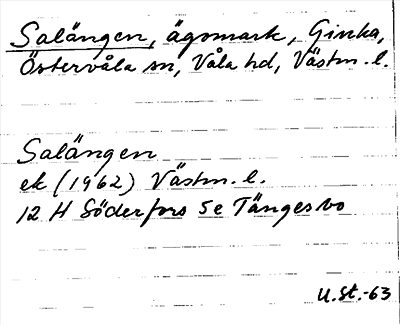 Salängen, ägomark, Ginka,
Östervåla sn, Våla hd, Västm.l.
Salängen
ek (1962) Västm.l.
12 H Söderfors 5e Tängesbo
U.St.-63